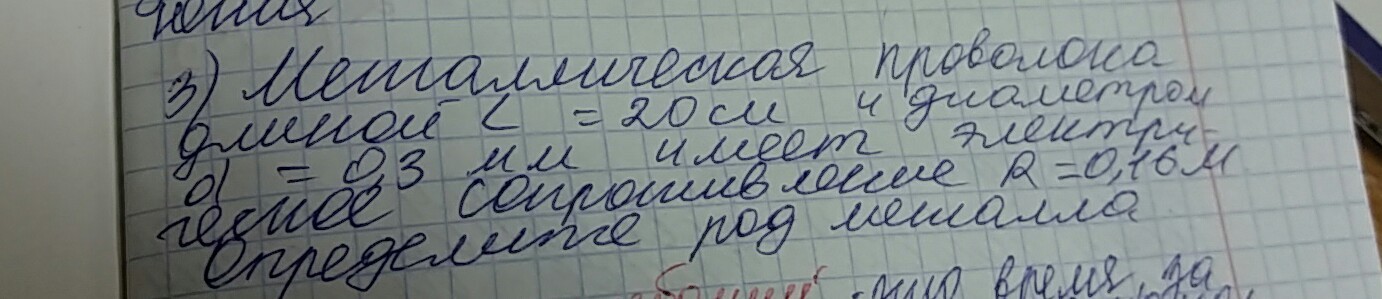 3) Металлическая проволока
длиной L = 20 см и диаметром
d = 0,3 мм имеет электри-
ческое сопротивление R = 0,16 М
Определите род металла
время, за